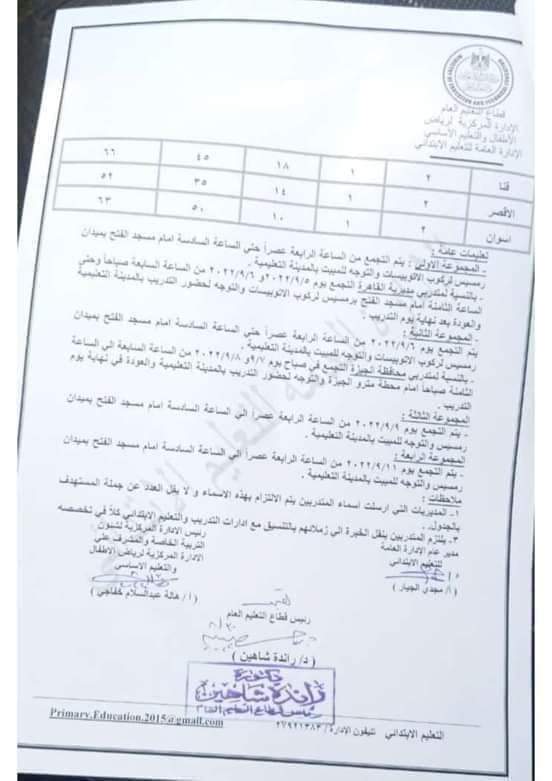 قطاع التعليم العام
الإدارة المركزية لرياض
الأطفال والتعليم الأساسي
الإدارة العامة للتعليم الابتدائي
قنا ٢ ١ ١٨ ٤٥ ٦٦
الاقصر ٢ ١ ١٤ ٣٥ ٥٢
اسوان ٢ ١ ١٠ ٥٠ ٦٣
تعليمات عامة :
- المجموعة الاولي : يتم التجمع من الساعة الرابعة عصراً حتي الساعة السادسة امام مسجد الفتح بميدان
رمسيس لركوب الاتوبيسات والتوجه للمبيت بالمدينة التعليمية .
- بالنسبة لمتدربي مديرية القاهرة التجمع يوم ٢٠٢٢/٩/٥ و ٢٠٢٢/٩/٦ من الساعة السابعة صباحاً وحتي
الساعة الثامنة امام مسجد الفتح برمسيس لركوب الاتوبيسات والتوجه لحضور التدريب بالمدينة التعليمية
والعودة بعد نهاية يوم التدريب .
- المجموعة الثانية :
يتم التجمع يوم ٢٠٢٢/٩/٦ من الساعة الرابعة عصراً حتي الساعة السادسة امام مسجد الفتح بميدان
رمسيس لركوب الاتوبيسات والتوجه للمبيت بالمدينة التعليمية .
- بالنسبة لمتدربي محافظة الجيزة التجمع في صباح يوم ٩/٧ و ٢٠٢٢/٩/٨ من الساعة السابعة الي الساعة
الثامنة صباحا امام محطة مترو الجيزة والتوجه لحضور التدريب بالمدينة التعليمية والعودة في نهاية يوم
التدريب .
المجموعة الثالثة :
- يتم التجمع يوم ٢٠٢٢/٩/٩ من الساعة الرابعة عصرا الي الساعة السادسة امام مسجد الفتح بميدان
رمسيس والتوجه للمبيت بالمدينة التعليمية .
المجموعة الرابعة :
- يتم التجمع يوم ٢٠٢٢/٩/١١ من الساعة الرابعة عصراً الي الساعة السادسة امام مسجد الفتح بميدان
رمسيس والتوجه للمبيت بالمدينة التعليمية .
ملاحظات :
١- المديريات التي ارسلت أسماء المتدربين يتم الالتزام بهذه الاسماء و لا يقل العدد عن جملة المستهدف
بالجدول .
٣. يلتزم المتدربين بنقل الخبرة الي زملائهم بالتنسيق مع ادارات التدريب والتعليم الابتدائي كلاً في تخصصه
مدير عام الإدارة العامة
للتعليم الابتدائي
( أ/ مجدي الجيار )
رئيس الإدارة المركزية لشئون
التربية الخاصة والمشرف علي
الادارة المركزية لرياض الاطفال
والتعليم الاساسي
( أ/ هالة عبدالسلام خفاجي )
رئيس قطاع التعليم العام
( د/ راندة شاهين )
دكتورة
راندة شاهين
رئيس قطاع التعليم العام
التعليم الابتدائي تليفون الإدارة / ٢٧٩٢١٣٨٣
Primary.Education.2015@gmail.com